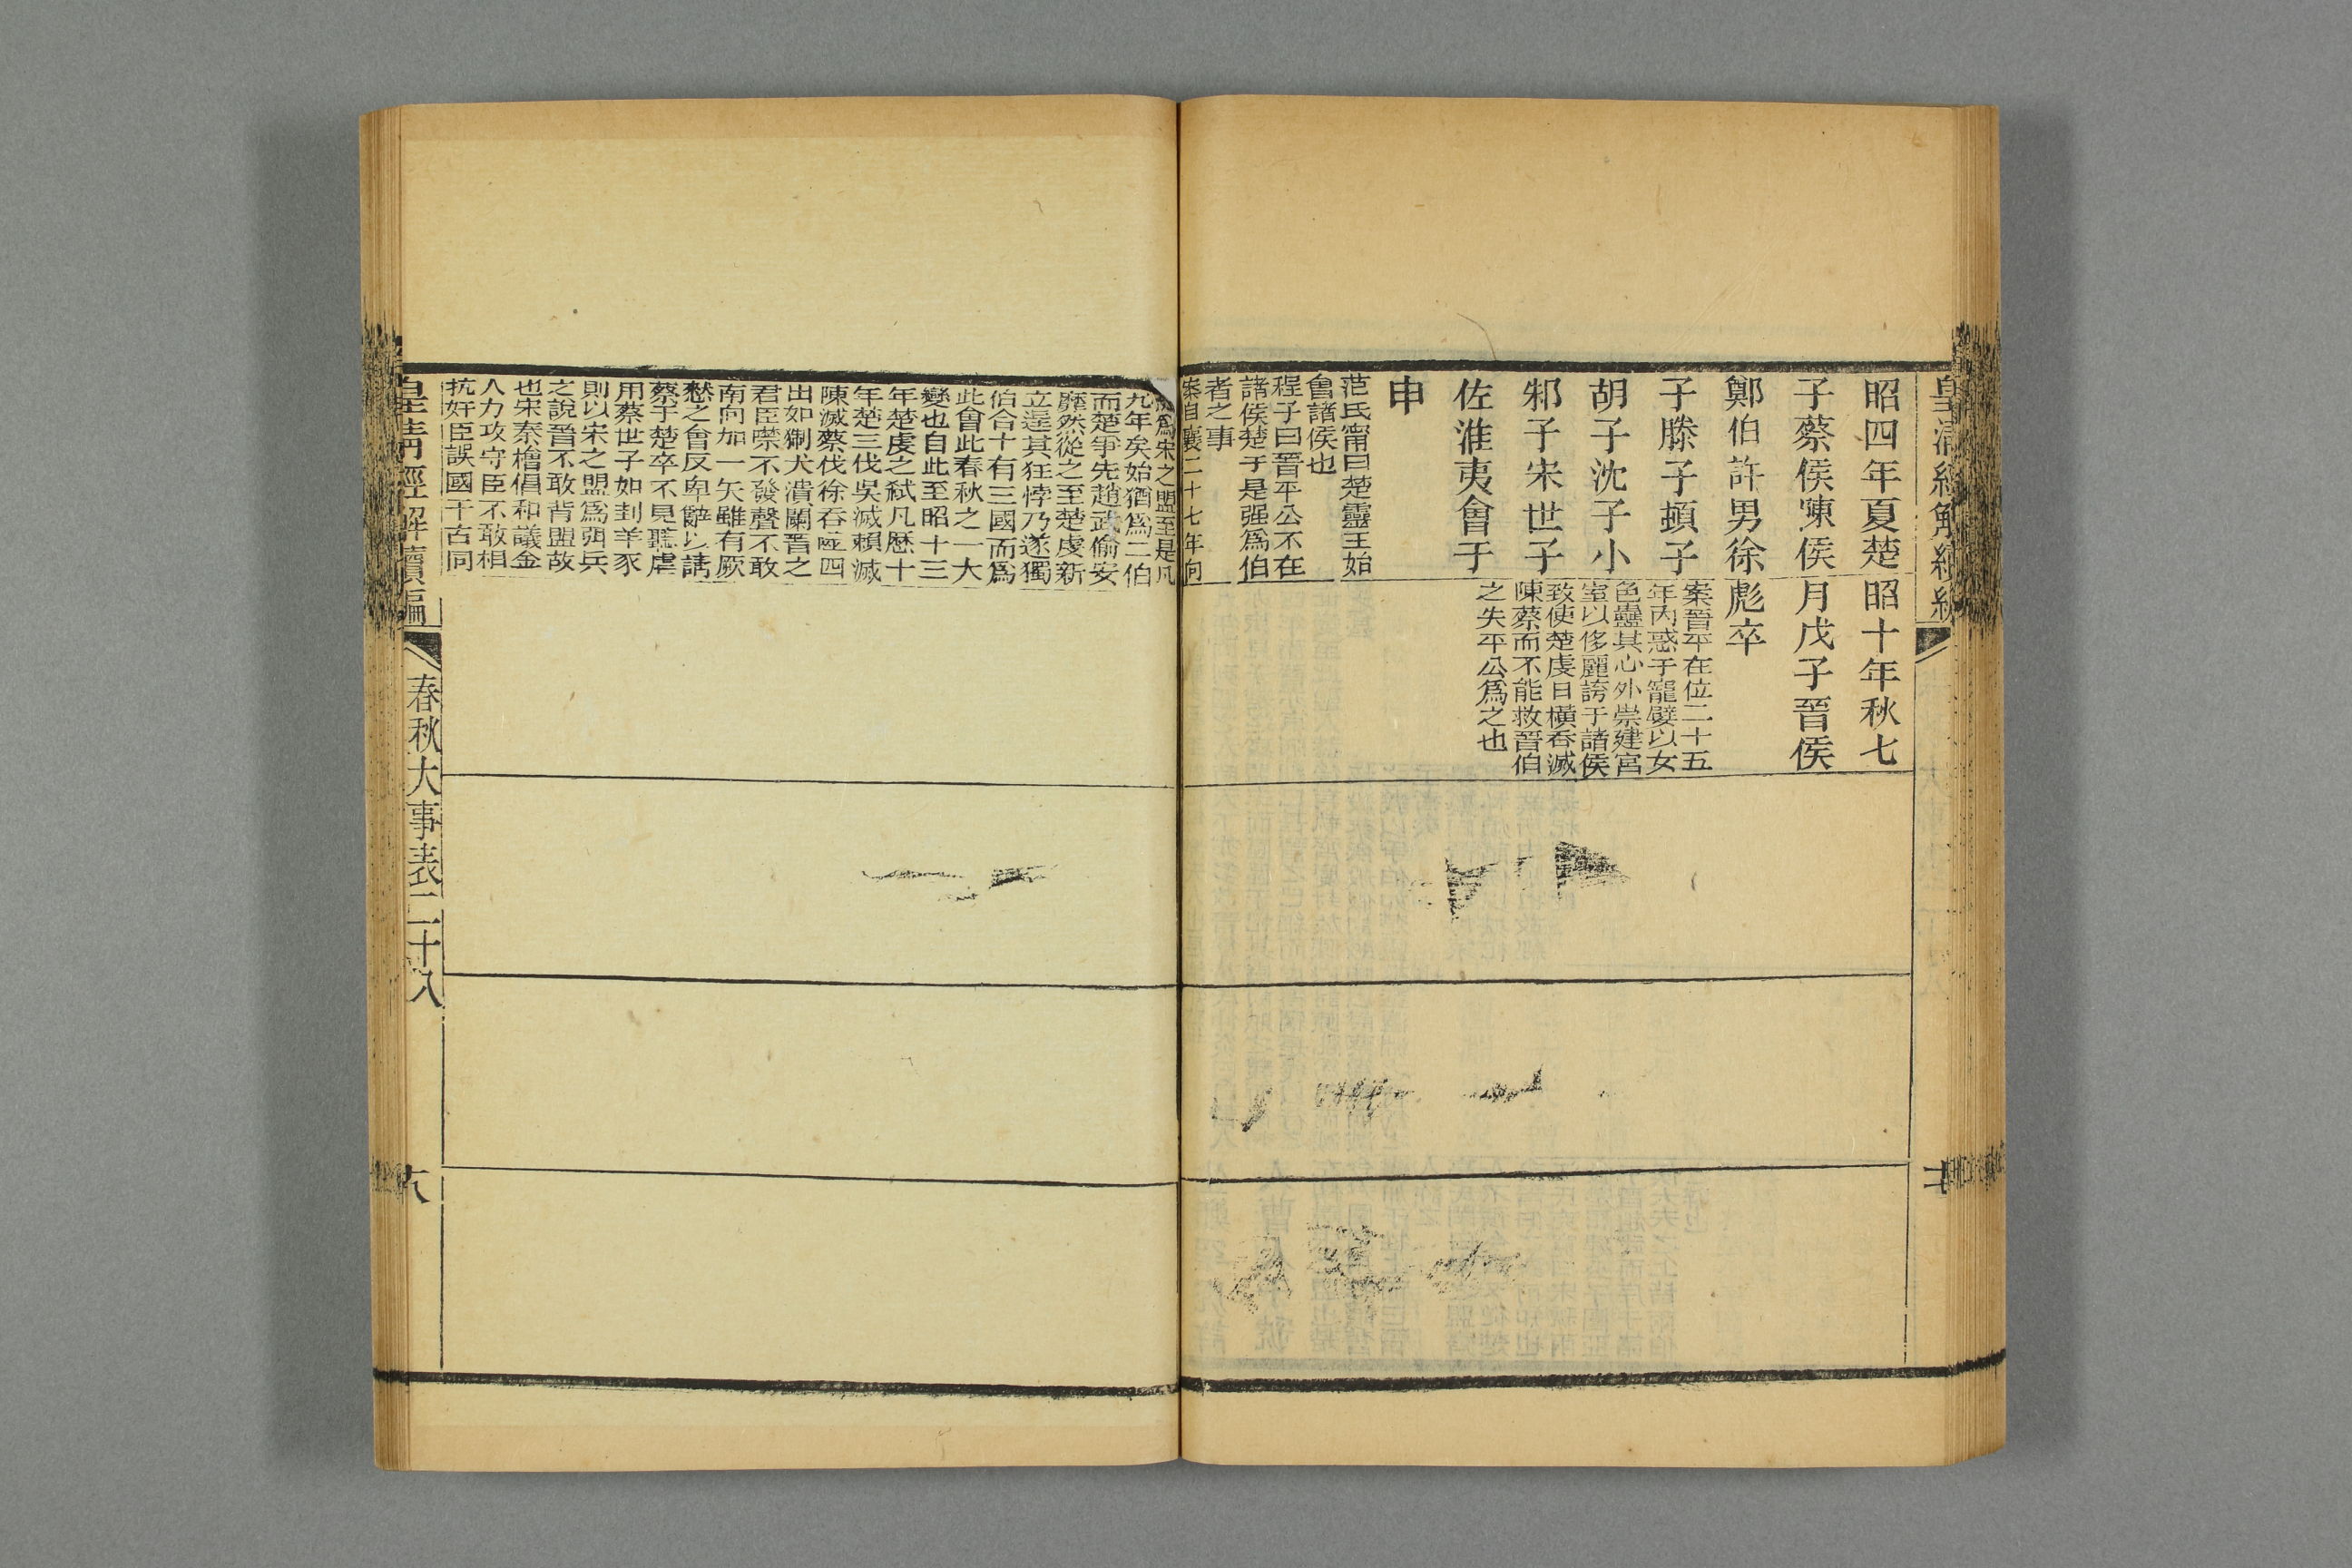 昭四年夏楚
子蔡侯陳侯
鄭伯許男徐
子滕子頓子
胡子沈子小
邾子宋世子
佐淮夷會于
申
范氏甯曰楚靈王始
會諸侯也
程子曰晉平公不在
諸侯楚于是强爲伯
者之事
案自襄二十七年向
戌爲宋之盟至是凡
九年矣始猶爲二伯
而楚爭先趙武偷安
靡然從之至楚虔新
立逞其狂悖乃遂獨
伯合十有三國而爲
此會此春秋之一大
變也自此至昭十三
年楚虔之弒凡歷十
年楚三伐吳滅賴滅
陳滅蔡伐徐吞噬四
出如猘犬潰闌晉之
君臣噤不發聲不敢
南向加一矢雖有厥
憖之會反卑辭以請
蔡于楚卒不見聽虐
用蔡世子如刲羊豕
則以宋之盟爲弭兵
之說晉不敢背盟故
也宋秦檜倡和議金
人力攻守臣不敢相
抗奸臣誤國千古同
昭十年秋七
月戊子晉侯
彪卒
案晉平在位二十五
年內惑于寵嬖以女
色蠱其心外崇建宮
室以侈麗誇于諸侯
致使楚虔日橫吞滅
陳蔡而不能救晉伯
之失平公爲之也
皇清經解續編
春秋大事表二十八
六